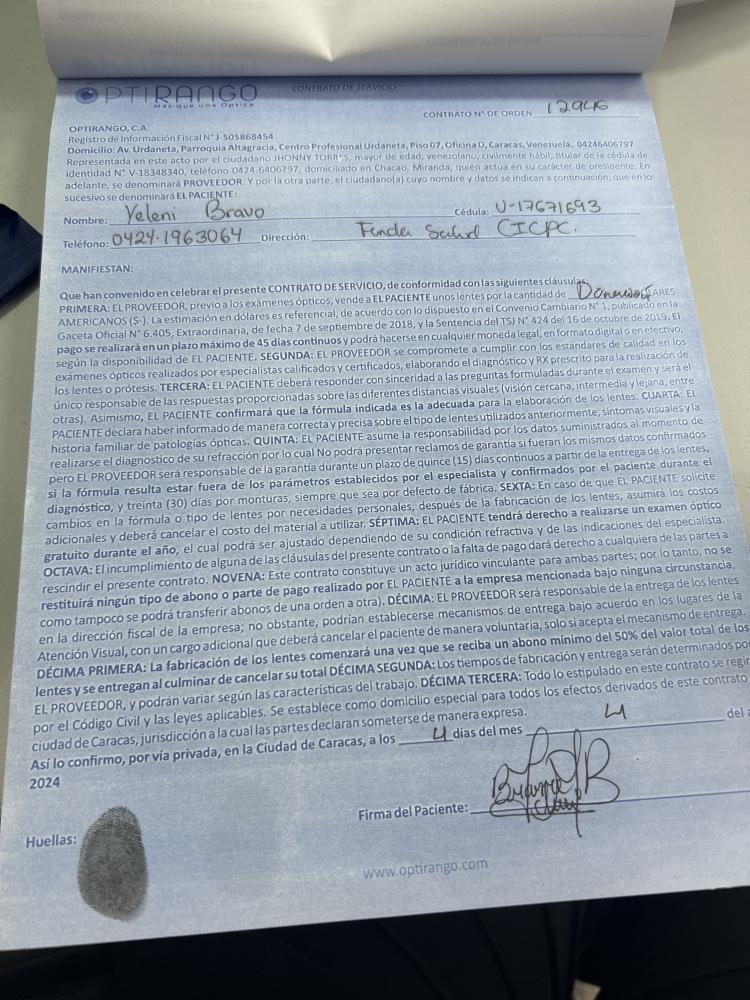 OPTIRANGO
Más que una Óptica
CONTRATO DE SERVICIO
CONTRATO N° DE ORDEN 12946
OPTIRANGO, C.A.
Registro de Información Fiscal N° J-505868454
Domicilio: Av. Urdaneta, Parroquia Altagracia, Centro Profesional Urdaneta, Piso 07, Oficina D, Caracas, Venezuela. 04246406797
Representada en este acto por el ciudadano JHONNY TORRES, mayor de edad, venezolano, civilmente hábil, titular de la cédula de
identidad N° V-18348340, teléfono 0424-6406797, domiciliado en Chacao, Miranda, quién actúa en su carácter de presidente. En
adelante, se denominará PROVEEDOR. Y por la otra parte, el ciudadano(a) cuyo nombre y datos se indican a continuación, que en lo
sucesivo se denominará EL PACIENTE:
Nombre: Yeleni Bravo Cédula: V-17671693
Teléfono: 0424-1963064 Dirección: Funda Salud CICPC.
MANIFIESTAN:
Que han convenido en celebrar el presente CONTRATO DE SERVICIO, de conformidad con las siguientes cláusulas:
PRIMERA: EL PROVEEDOR, previo a los exámenes ópticos, vende a EL PACIENTE unos lentes por la cantidad de
AMERICANOS ($-). La estimación en dólares es referencial, de acuerdo con lo dispuesto en el Convenio Cambiario N° 1, publicado en la
Gaceta Oficial N° 6.405, Extraordinaria, de fecha 7 de septiembre de 2018, y la Sentencia del TSJ N° 424 del 16 de octubre de 2019. El
pago se realizará en un plazo máximo de 45 días continuos y podrá hacerse en cualquier moneda legal, en formato digital o en efectivo,
según la disponibilidad de EL PACIENTE. SEGUNDA: EL PROVEEDOR se compromete a cumplir con los estándares de calidad en los
exámenes ópticos realizados por especialistas calificados y certificados, elaborando el diagnóstico y RX prescrito para la realización de
los lentes o prótesis. TERCERA: EL PACIENTE deberá responder con sinceridad a las preguntas formuladas durante el examen y será el
único responsable de las respuestas proporcionadas sobre las diferentes distancias visuales (visión cercana, intermedia y lejana, entre
otras). Asimismo, EL PACIENTE confirmará que la fórmula indicada es la adecuada para la elaboración de los lentes. CUARTA: EL
PACIENTE declara haber informado de manera correcta y precisa sobre el tipo de lentes utilizados anteriormente, síntomas visuales y la
historia familiar de patologías ópticas. QUINTA: EL PACIENTE asume la responsabilidad por los datos suministrados al momento de
realizarse el diagnostico de su refracción por lo cual No podrá presentar reclamos de garantía si fueran los mismos datos confirmados
pero EL PROVEEDOR será responsable de la garantía durante un plazo de quince (15) días continuos a partir de la entrega de los lentes,
si la fórmula resulta estar fuera de los parámetros establecidos por el especialista y confirmados por el paciente durante el
diagnóstico, y treinta (30) días por monturas, siempre que sea por defecto de fábrica. SEXTA: En caso de que EL PACIENTE solicite
cambios en la fórmula o tipo de lentes por necesidades personales, después de la fabricación de los lentes, asumirá los costos
adicionales y deberá cancelar el costo del material a utilizar. SÉPTIMA: EL PACIENTE tendrá derecho a realizarse un examen óptico
gratuito durante el año, el cual podrá ser ajustado dependiendo de su condición refractiva y de las indicaciones del especialista.
OCTAVA: El incumplimiento de alguna de las cláusulas del presente contrato o la falta de pago dará derecho a cualquiera de las partes a
rescindir el presente contrato. NOVENA: Este contrato constituye un acto jurídico vinculante para ambas partes; por lo tanto, no se
restituirá ningún tipo de abono o parte de pago realizado por EL PACIENTE a la empresa mencionada bajo ninguna circunstancia,
como tampoco se podrá transferir abonos de una orden a otra). DÉCIMA: EL PROVEEDOR será responsable de la entrega de los lentes
en la dirección fiscal de la empresa; no obstante, podrían establecerse mecanismos de entrega bajo acuerdo en los lugares de la
Atención Visual, con un cargo adicional que deberá cancelar el paciente de manera voluntaria, solo si acepta el mecanismo de entrega.
DÉCIMA PRIMERA: La fabricación de los lentes comenzará una vez que se reciba un abono mínimo del 50% del valor total de los
lentes y se entregan al culminar de cancelar su total DÉCIMA SEGUNDA: Los tiempos de fabricación y entrega serán determinados por
EL PROVEEDOR, y podrán variar según las características del trabajo. DÉCIMA TERCERA: Todo lo estipulado en este contrato se regir
por el Código Civil y las leyes aplicables. Se establece como domicilio especial para todos los efectos derivados de este contrato
ciudad de Caracas, jurisdicción a la cual las partes declaran someterse de manera expresa.
Así lo confirmo, por vía privada, en la Ciudad de Caracas, a los 4 días del mes 4 del a
2024
Firma del Paciente:
Huellas:
www.optirango.com